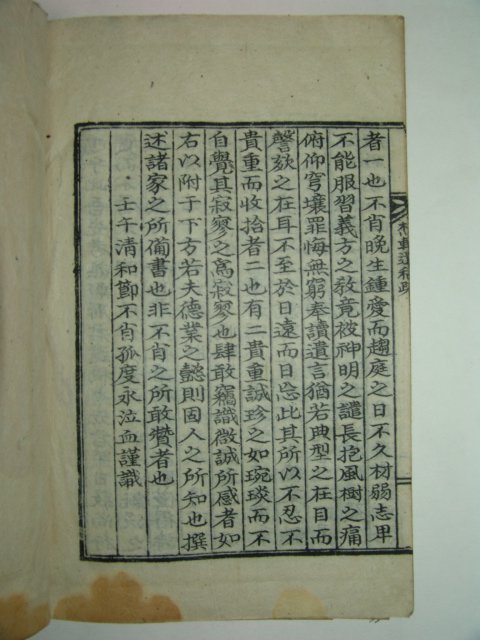 者一也不肖晩生鍾愛而趨庭之日不久材弱志卑
不能服習義方之敎竟被神明之譴長抱風樹之痛
俯仰穹壤罪悔無窮奉讀遺言猶若典型之在目而
謦欬之在耳不至於日遠而日忘此其所以不忍不
貴重而收拾者二也有二貴重誠珍之如琬琰而不
自覺其寂寥之爲寂寥也肆敢竊識微誠所感者如
右以附于下方若夫德業之懿則固人之所知也撰
述諸家之所備書也非不肖之所敢贊者也
壬午淸和節不肖孤度永泣血謹識